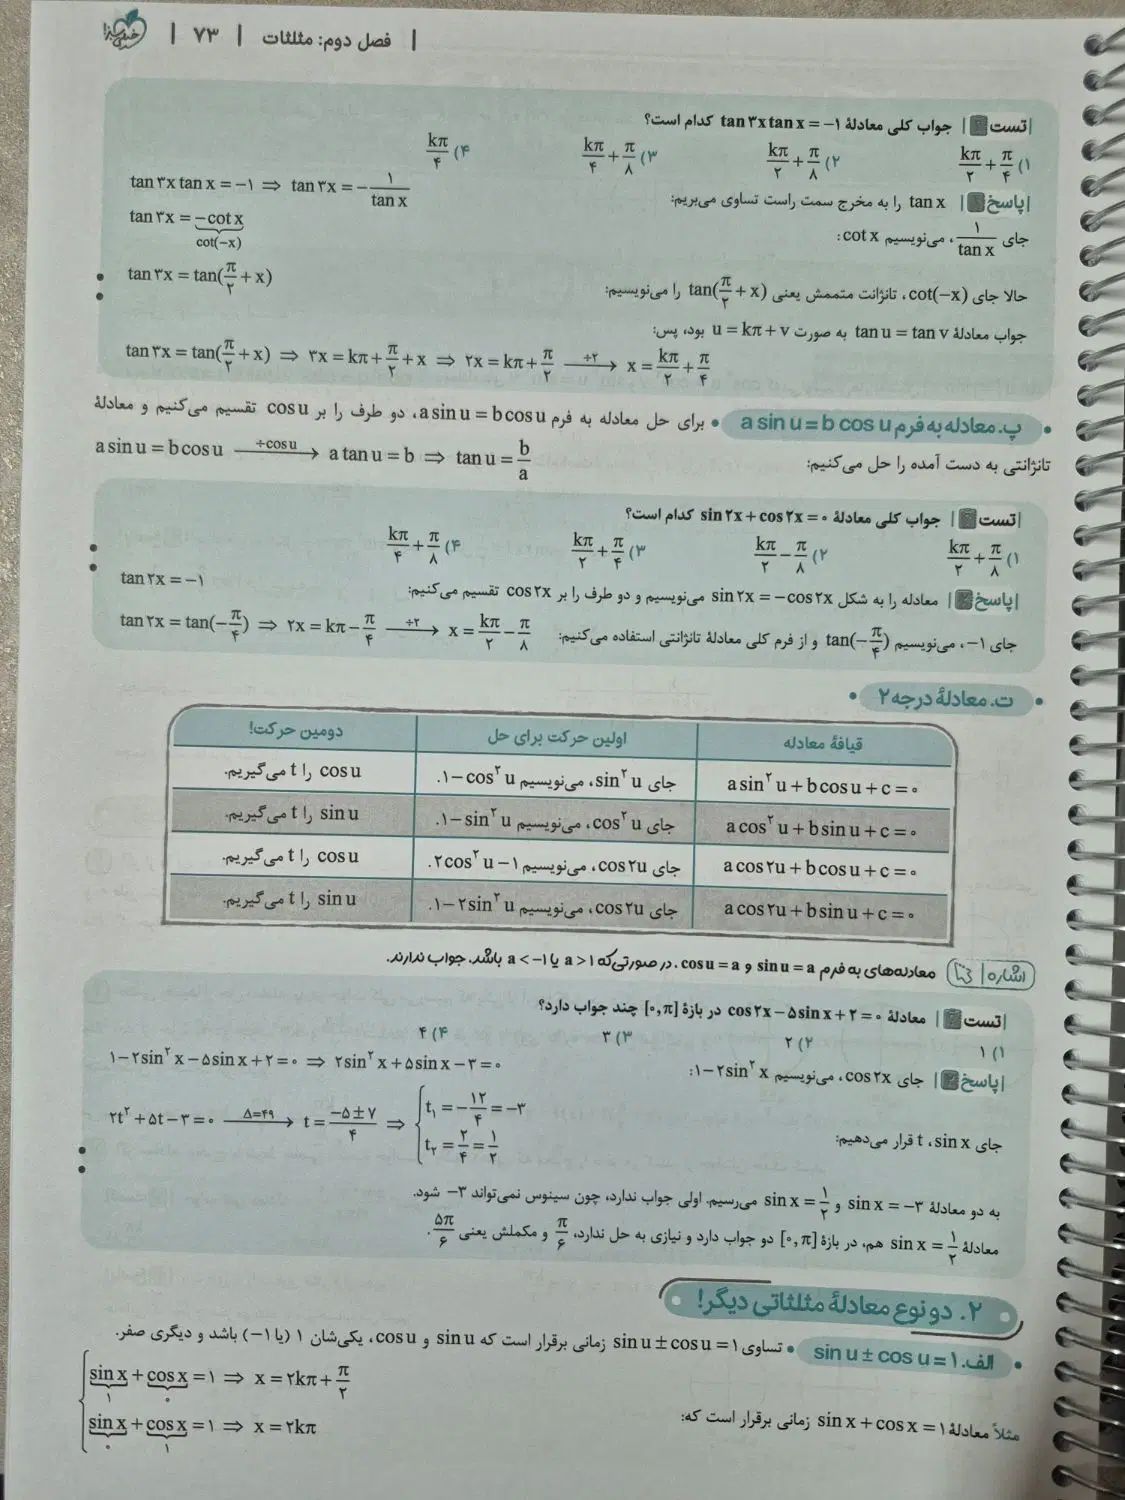 | فصل دوم: مثلثات | ۷۳ |
|تست| جواب کلی معادلهٔ tan۳x tan x = −۱ کدام است؟
۱) kπ/۲ + π/۴   ۲) kπ/۲ + π/۸   ۳) kπ/۴ + π/۸   ۴) kπ/۴
|پاسخ| tan x را به مخرج سمت راست تساوی می‌بریم:
tan۳x tan x = −۱ ⇒ tan۳x = −۱/tan x
جای ۱/tan x، می‌نویسیم cot x:
tan۳x = −cot x
cot(−x)
حالا جای cot(−x)، تانژانت متممش یعنی tan(π/۲ + x) را می‌نویسیم:
tan۳x = tan(π/۲ + x)
جواب معادلهٔ tan u = tan v به صورت u = kπ + v بود، پس:
tan۳x = tan(π/۲ + x) ⇒ ۳x = kπ + π/۲ + x ⇒ ۲x = kπ + π/۲ ÷۲→ x = kπ/۲ + π/۴
• پ. معادله به فرم a sin u = b cos u • برای حل معادله به فرم a sin u = b cos u، دو طرف را بر cos u تقسیم می‌کنیم و معادلهٔ
تانژانتی به دست آمده را حل می‌کنیم:
a sin u = b cos u ÷cos u→ a tan u = b ⇒ tan u = b/a
|تست| جواب کلی معادلهٔ sin۲x + cos۲x = ۰ کدام است؟
۱) kπ/۲ + π/۸   ۲) kπ/۲ − π/۸   ۳) kπ/۲ + π/۴   ۴) kπ/۴ + π/۸
|پاسخ| معادله را به شکل sin۲x = −cos۲x می‌نویسیم و دو طرف را بر cos۲x تقسیم می‌کنیم:
tan۲x = −۱
جای ۱−، می‌نویسیم tan(−π/۴) و از فرم کلی معادلهٔ تانژانتی استفاده می‌کنیم:
tan۲x = tan(−π/۴) ⇒ ۲x = kπ − π/۴ ÷۲→ x = kπ/۲ − π/۸
• ت. معادلهٔ درجه ۲ •
قیافهٔ معادله   اولین حرکت برای حل   دومین حرکت!
a sin² u + b cos u + c = ۰   جای sin² u، می‌نویسیم ۱ − cos² u.   cos u را t می‌گیریم.
a cos² u + b sin u + c = ۰   جای cos² u، می‌نویسیم ۱ − sin² u.   sin u را t می‌گیریم.
a cos۲u + b cos u + c = ۰   جای cos۲u، می‌نویسیم ۲cos² u − ۱.   cos u را t می‌گیریم.
a cos۲u + b sin u + c = ۰   جای cos۲u، می‌نویسیم ۱ − ۲sin² u.   sin u را t می‌گیریم.
اشاره| معادله‌های به فرم sin u = a و cos u = a، در صورتی‌که a > ۱ یا a < −۱ باشد، جواب ندارند.
|تست| معادلهٔ cos۲x − ۵sin x + ۲ = ۰ در بازهٔ [۰, π] چند جواب دارد؟
۱) ۱   ۲) ۲   ۳) ۳   ۴) ۴
|پاسخ| جای cos۲x، می‌نویسیم ۱ − ۲sin² x:
۱ − ۲sin² x − ۵sin x + ۲ = ۰ ⇒ ۲sin² x + ۵sin x − ۳ = ۰
جای sin x، t قرار می‌دهیم:
۲t² + ۵t − ۳ = ۰ Δ=۴۹→ t = (−۵ ± ۷)/۴ ⇒ { t₁ = −۱۲/۴ = −۳
t₂ = ۲/۴ = ۱/۲
به دو معادلهٔ sin x = −۳ و sin x = ۱/۲ می‌رسیم. اولی جواب ندارد، چون سینوس نمی‌تواند ۳− شود.
معادلهٔ sin x = ۱/۲ هم، در بازهٔ [۰, π] دو جواب دارد و نیازی به حل ندارد، π/۶ و مکملش یعنی ۵π/۶.
۲. دو نوع معادلهٔ مثلثاتی دیگر!
• الف. sin u ± cos u = ۱ • تساوی sin u ± cos u = ۱ زمانی برقرار است که sin u و cos u، یکی‌شان ۱ (یا ۱−) باشد و دیگری صفر.
مثلاً معادلهٔ sin x + cos x = ۱ زمانی برقرار است که:
sin x + cos x = ۱ ⇒ x = ۲kπ + π/۲
۱   ۰
sin x + cos x = ۱ ⇒ x = ۲kπ
۰   ۱